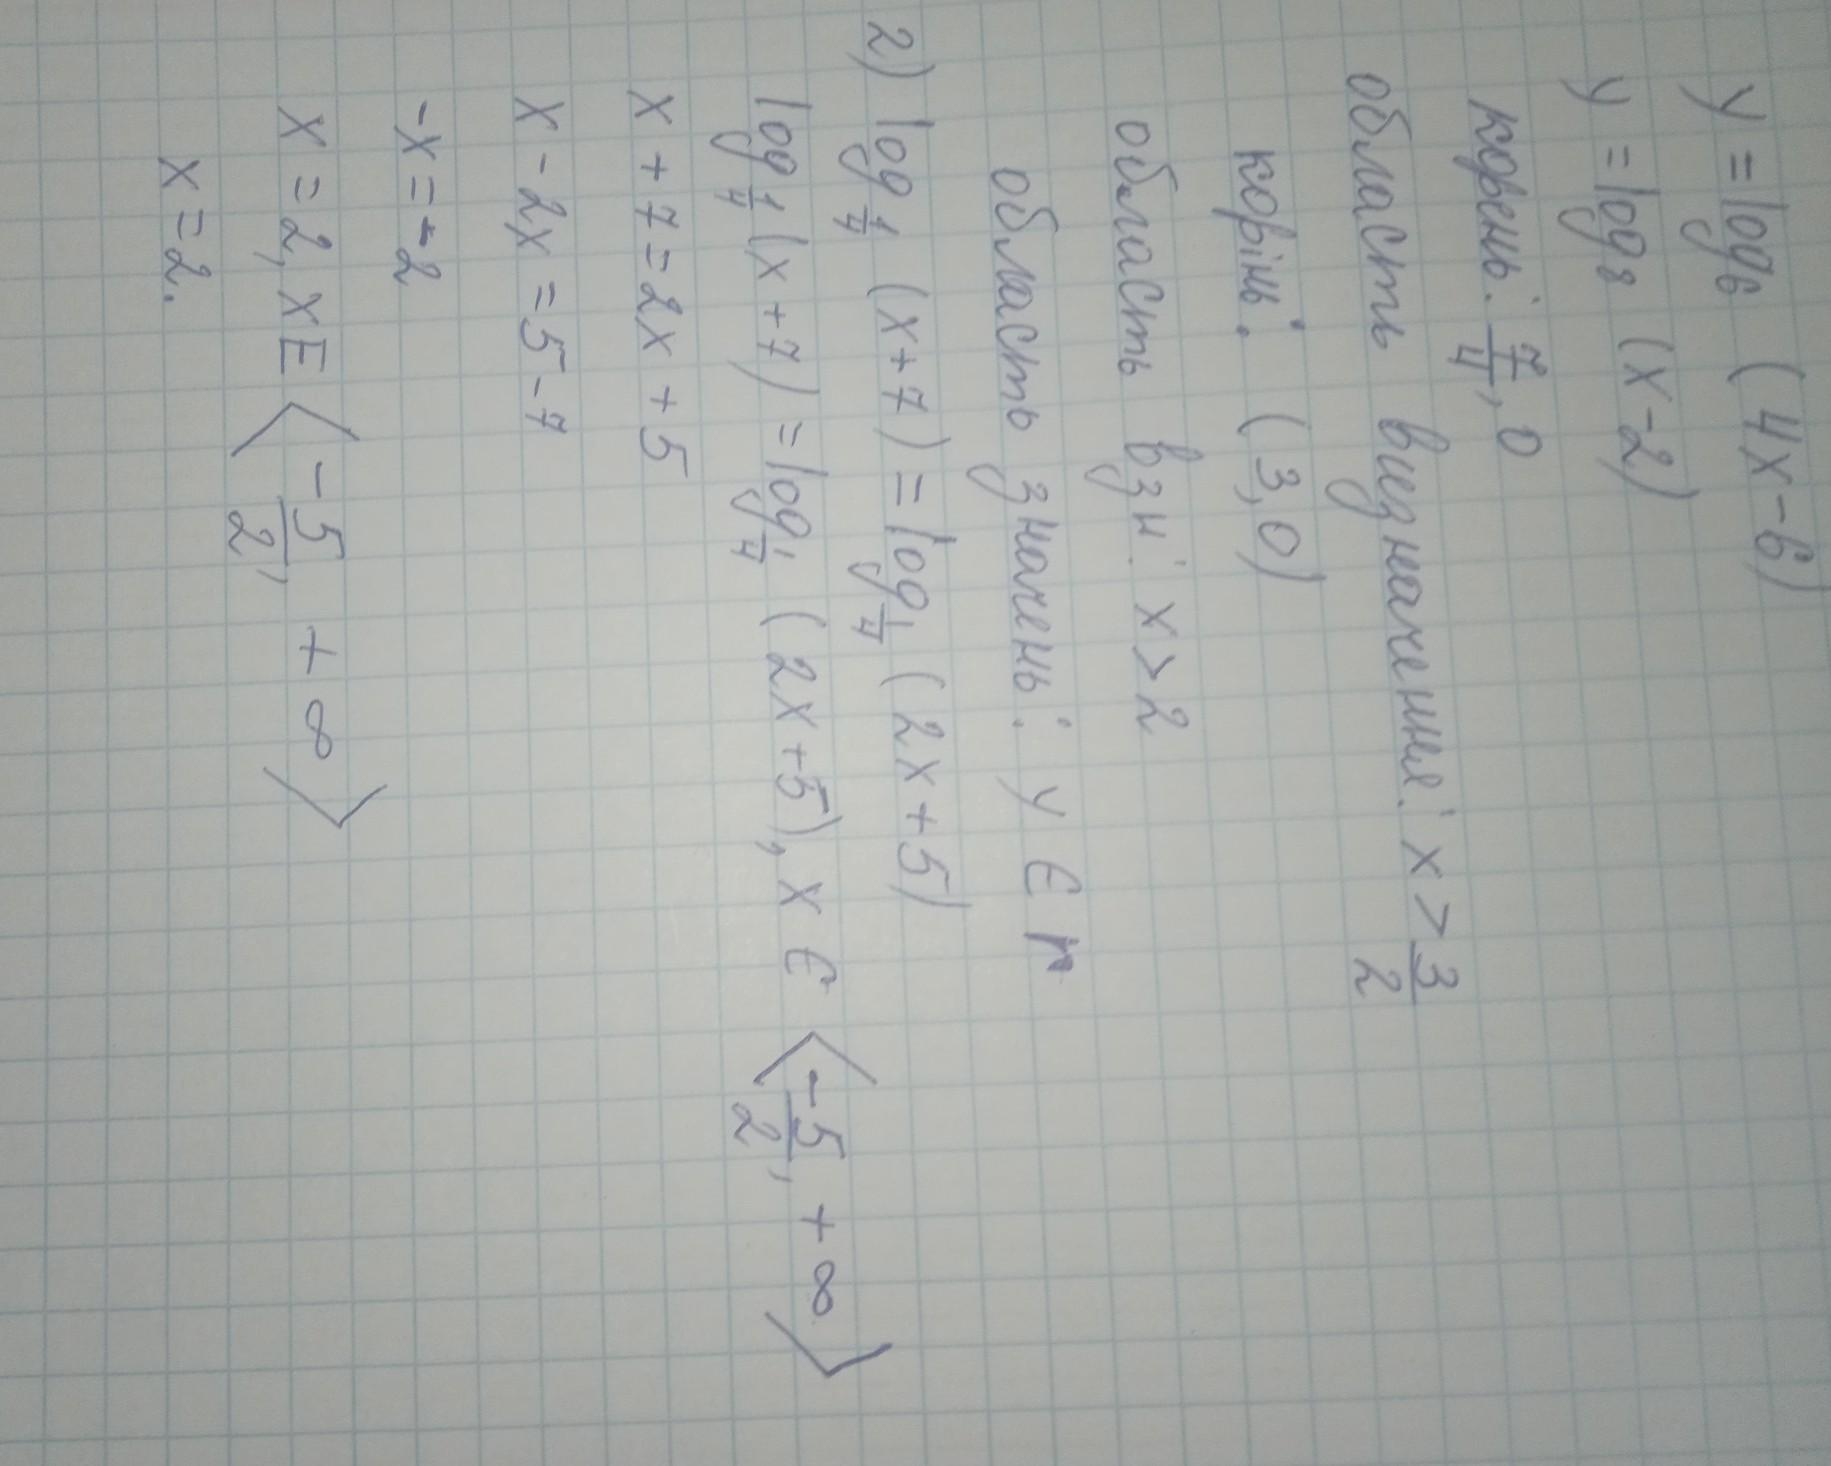 y = log₆ (4x - 6)
y = log₈ (x - 2)
корень: 7/4, 0
область визначення: x > 3/2
корінь: (3, 0)
область взн: x > 2
область значень: y ∈ r
2) log 1/4 (x + 7) = log 1/4 (2x + 5)
log 1/4 (x + 7) = log 1/4 (2x + 5), x ∈ ⟨-5/2, +∞⟩
x + 7 = 2x + 5
x - 2x = 5 - 7
-x = -2
x = 2, x E ⟨-5/2, +∞⟩
x = 2.